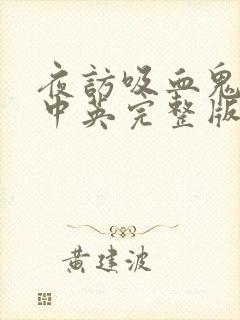 夜訪吸血鬼
中英完整版
黃建波